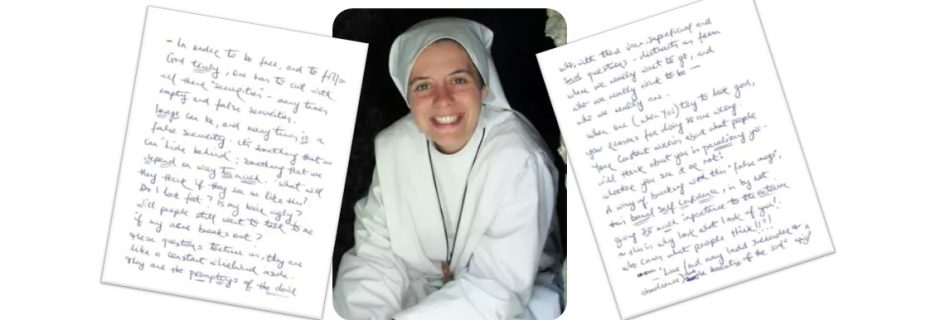 - In order to be free, and to follow
God truly, one has to cut with
all these "securities" - many times
empty and false securities.
Image can be, and many times is a
false security. Its something that we
can "hide behind"; something that we
depend on way too much. "What will
they think if they see me like this?
Do I look fat? Is my hair ugly?
Will people still want to talk to me
if my acne breaks out?
These questions torture us, they are
like a constant whirlwind inside.
They are the promptings of the devil
who, with these vain, superficial and
sad questions - distracts us, from
where we really want to go, and
who we really want to be —
who we really are.
When one (when you) try to look good,
your reasons for doing it are wrong.
Your constant worries about what people
will think about you is paralizing you -
whether you see it or not!
A way of breaking with this "false image",
banal self confidence, is by not
giving so much importance to the exterior
is why look what I look of you!
Who cares what people think!!?!
"Love and surrender
obedience) beauty of the soul"